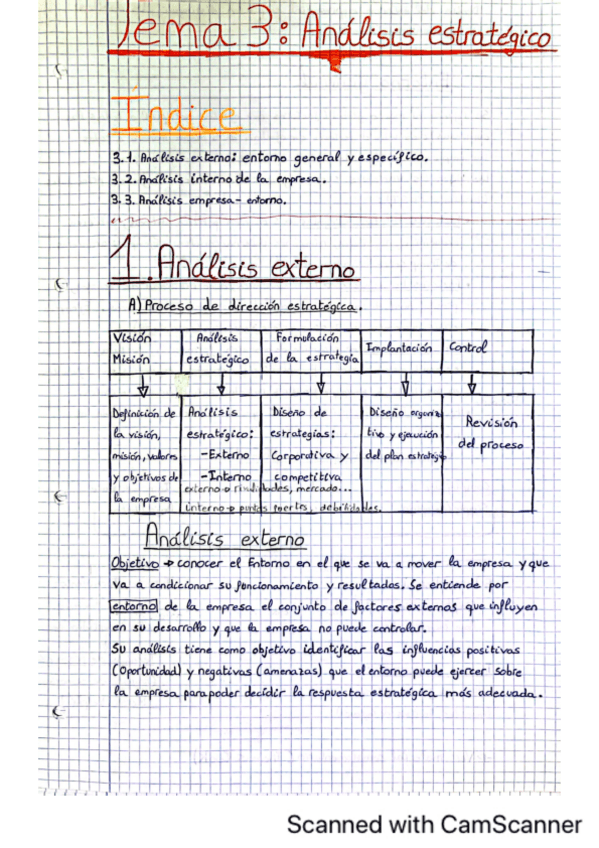 Tema 3: Análisis estratégico
Índice
3.1. Análisis externo: entorno general y específico.
3.2. Análisis interno de la empresa.
3.3. Análisis empresa-entorno.
1. Análisis externo
A) Proceso de dirección estratégica.
Visión
Misión
Análisis
estratégico
Formulación
de la estrategia
Implantación
Control
Definición de
la visión,
misión, valores
y objetivos de
la empresa
Análisis
estratégico:
-Externo
-Interno
externo → rivalidades, mercado...
interno → puntos fuertes, debilidades.
Diseño de
estrategias:
Corporativa y
competitiva
Diseño organiza
tivo y ejecución
del plan estratégi
Revisión
del proceso
Análisis externo
Objetivo → conocer el Entorno en el que se va a mover la empresa y que
va a condicionar su funcionamiento y resultados. Se entiende por
entorno de la empresa el conjunto de factores externos que influyen
en su desarrollo y que la empresa no puede controlar.
Su análisis tiene como objetivo identificar las influencias positivas
(oportunidad) y negativas (amenazas) que el entorno puede ejercer sobre
la empresa para poder decidir la respuesta estratégica más adecuada.
Scanned with CamScanner